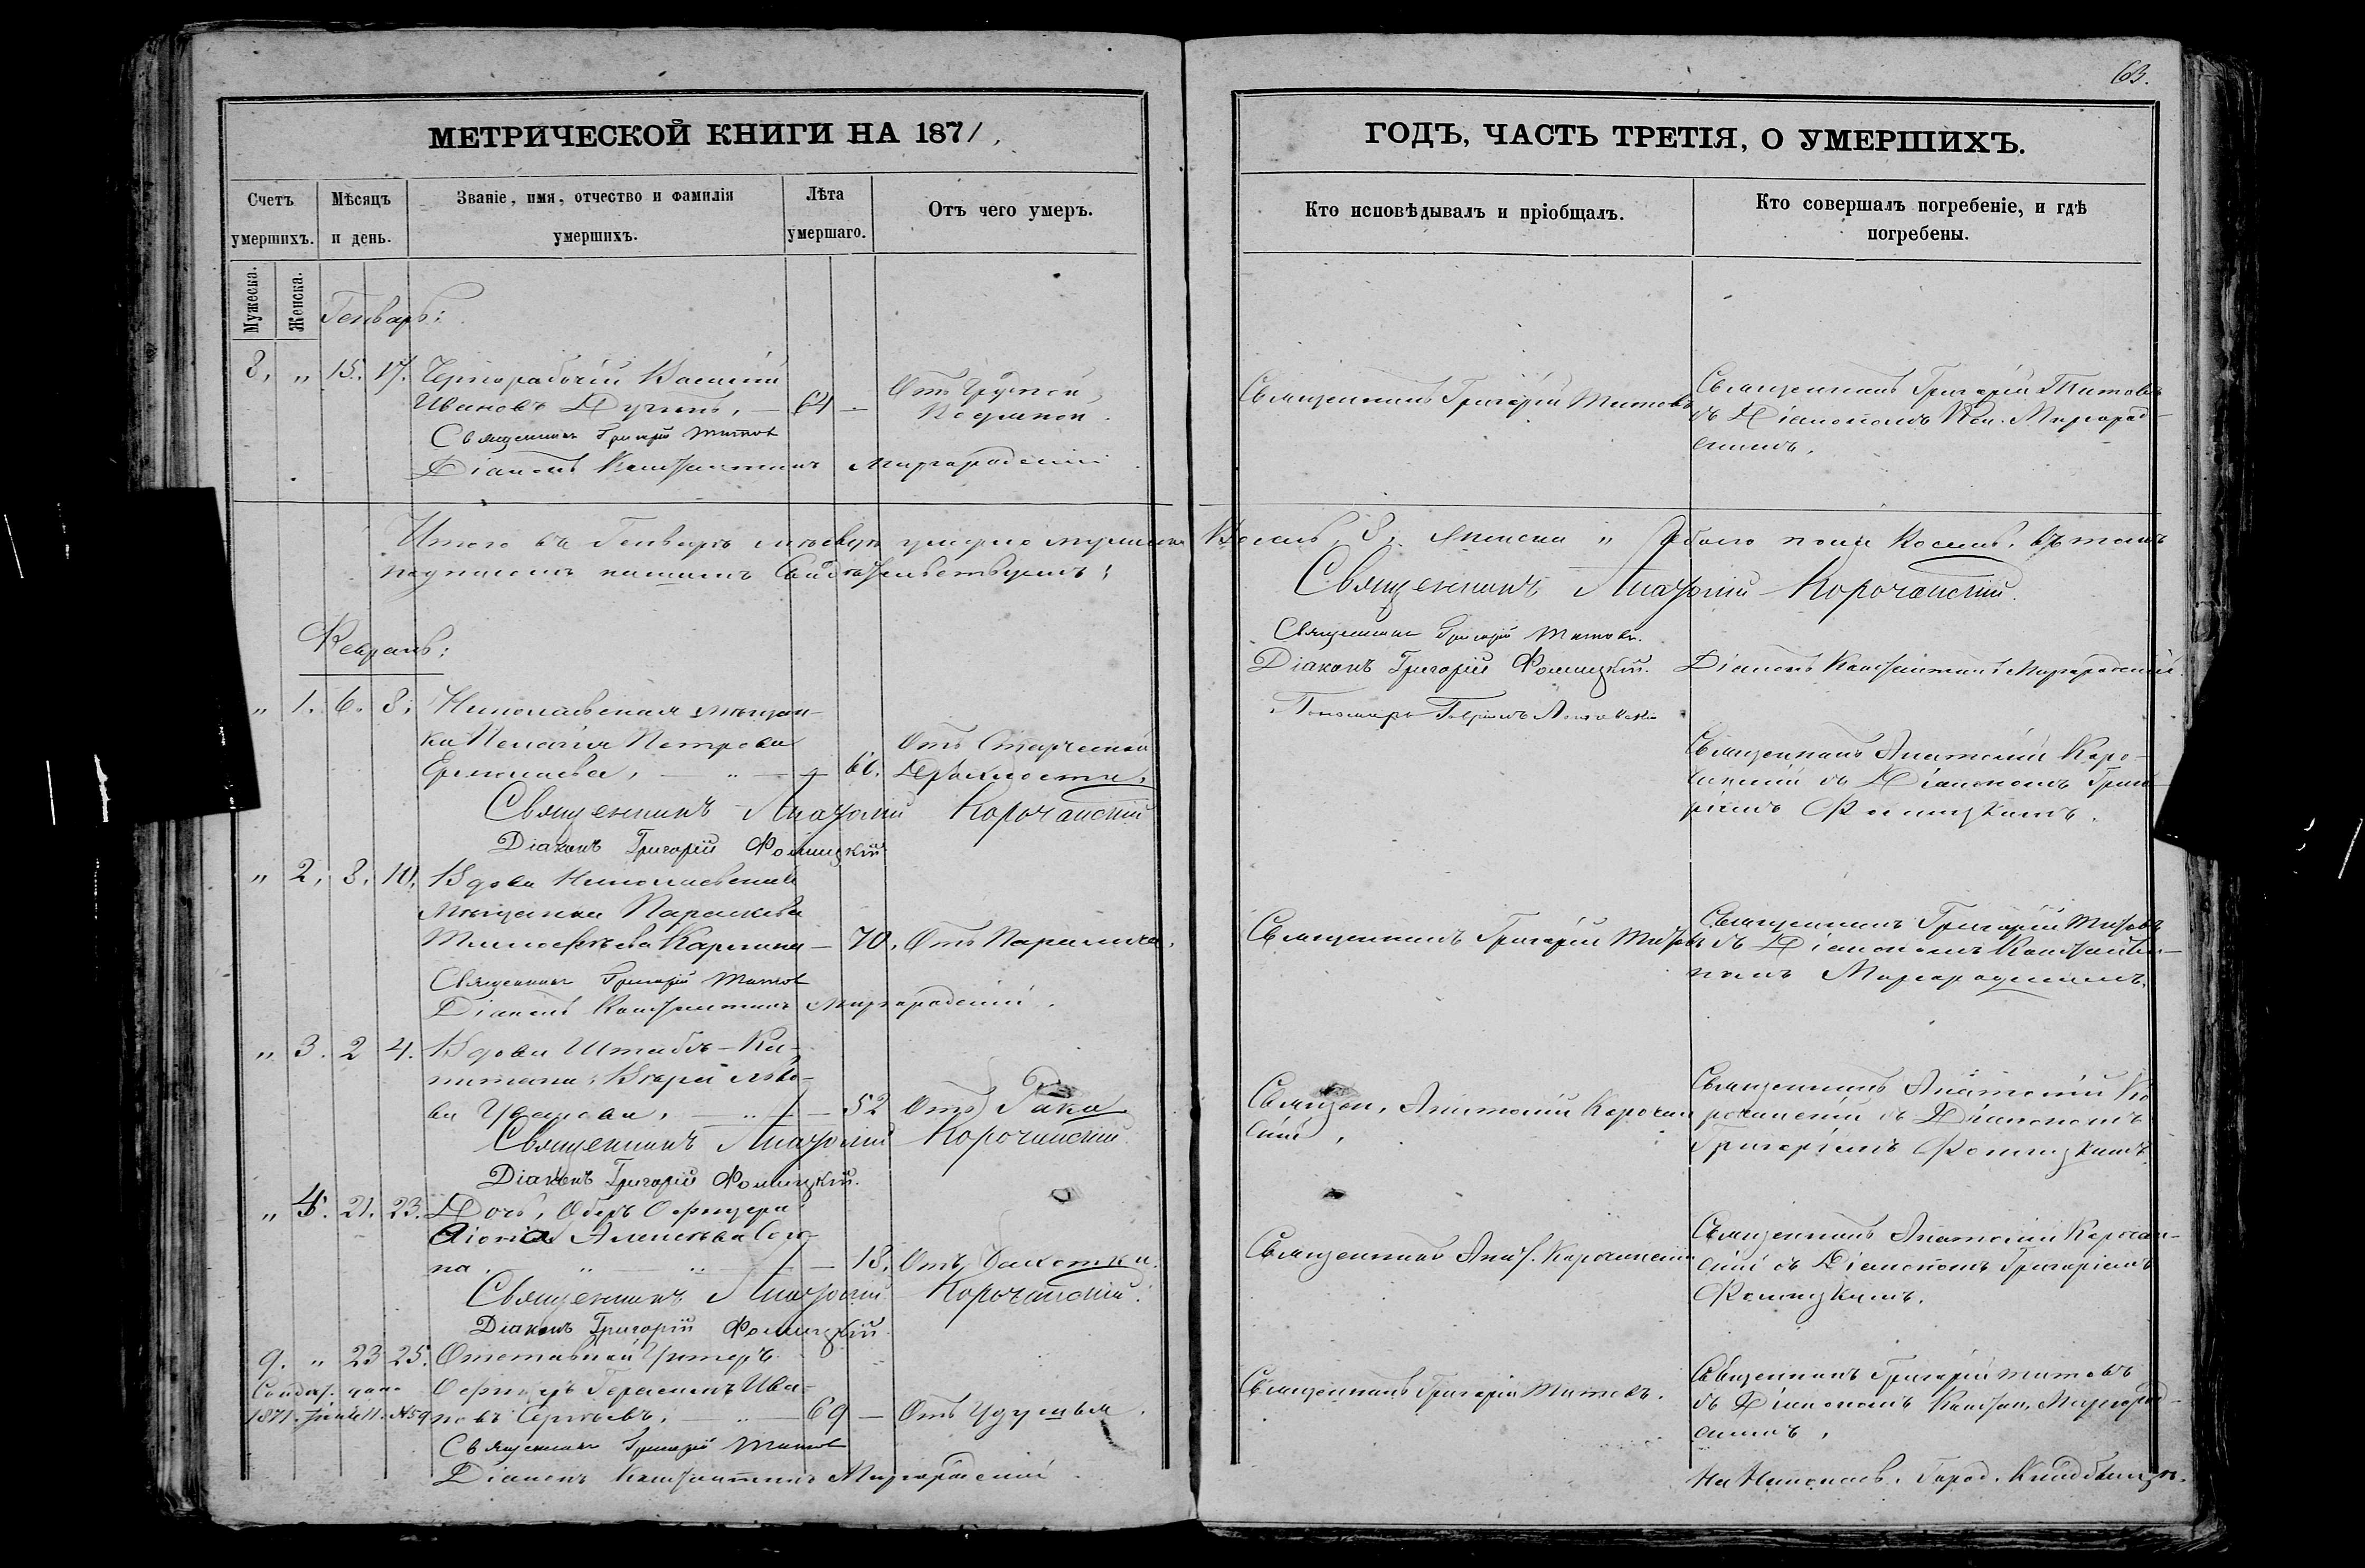 63.
МЕТРИЧЕСКОЙ КНИГИ НА 1871,
Счетъ умершихъ.
Мѣсяцъ и день.
Званіе, имя, отчество и фамилія умершихъ.
Лѣта умершаго.
Отъ чего умеръ.
Мужеска.
Женска.
Генварь:
8. " 15. 17. Чернорабочій Василій
Ивановъ 64 — Отъ Грудной
Священникъ Григорій Титовъ
Діаконъ Константинъ Миргородскій
Итого въ Генварѣ мѣсяцѣ умерло мужеска
подписомъ нашимъ свидѣтельствуемъ:
Февраль:
" 1. 6. 8. Николаевская мѣщан-
ка Пелагія Петрова
Ермолаева, — " — 60. Отъ Старческой
Дряхлости.
Священникъ Анатолій Корочанскій
Діаконъ Григорій Фомицкій
" 2. 8. 10. Вдова Николаевская
Мѣщанка Параскева
Тимофѣева — 70. Отъ Паралича.
Священникъ Григорій Титовъ
Діаконъ Константинъ Миргородскій.
" 3. 2 4. Вдова Штабсъ-Ка-
питана,
ва — 52 Отъ Рака
Священникъ Анатолій Корочанскій
Діаконъ Григорій Фомицкій.
" 4. 21. 23. Дочь, Оберъ Офицера
на. — 18. Отъ Чахотки.
Священникъ Анатолій Корочанскій.
Діаконъ Григорій Фомицкій
9. " 23 25. Отставной Унтеръ
Офицеръ Герасимъ Ива-
1871. №59 новъ Сергѣевъ. — " — 69 — Отъ Удушья.
Священникъ Григорій Титовъ
Діаконъ Константинъ Миргородскій.
ГОДЪ, ЧАСТЬ ТРЕТІЯ, О УМЕРШИХЪ.
Кто исповѣдывалъ и пріобщалъ.
Кто совершалъ погребеніе, и гдѣ погребены.
Священникъ Григорій Титовъ
Священникъ Григорій Титовъ
съ Діакономъ Кон. Миргород-
скимъ.
Восемь, 8, Женска " Обоего пола Восемь, въ томъ
Священникъ Анатолій Корочанскій.
Священникъ Григорій Титовъ.
Діаконъ Григорій Фомицкій. Діаконъ Константинъ Миргородскій.
Пономарь
Священникъ Анатолій Коро-
чанскій съ Діакономъ Григо-
ріемъ Фомицкимъ.
Священникъ Григорій Титовъ
Священникъ Григорій Титовъ
съ Діакономъ Константи-
номъ Миргородскимъ.
Священ. Анатолій Корочан
скій,
Священникъ Анатолій Ко
рочанскій съ Діакономъ
Григоріемъ Фомицкимъ.
Священникъ Анат. Корочанскій
Священникъ Анатолій Корочан-
скій съ Діакономъ Григоріемъ
Фомицкимъ.
Священникъ Григорій Титовъ.
Священникъ Григорій Титовъ
съ Діакономъ Констан. Миргород-
скимъ,
На Николаев. Город. Кладбищѣ.